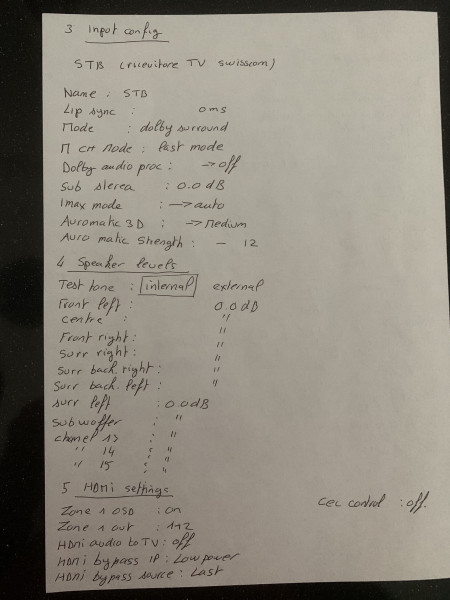 3 Input config
STB (ricevitore TV swisscom)
Name : STB
Lip sync : 0 ms
Mode : dolby surround
M CH Mode : last mode
Dolby audio proc : → off
Sub sterea : 0.0 dB
Imax mode : → auto
Auromatic 3D : → Medium
Auro matic Strength : - 12
4 Speaker levels
Test tone : internal external
Front left : 0.0 dB
Centre : "
Front right : "
Surr right : "
Surr back. right : "
Surr back. left : "
Surr left : 0.0 dB
Sub woffer : "
chanel 13 : "
" 14 : "
" 15 : "
5 HDMi settings
Cec control : off.
Zone 1 OSD : on
Zone 1 out : 1+2
HDMi audio to TV : off
HDMi bypass IP : Low power
HDMi bypass source : Last